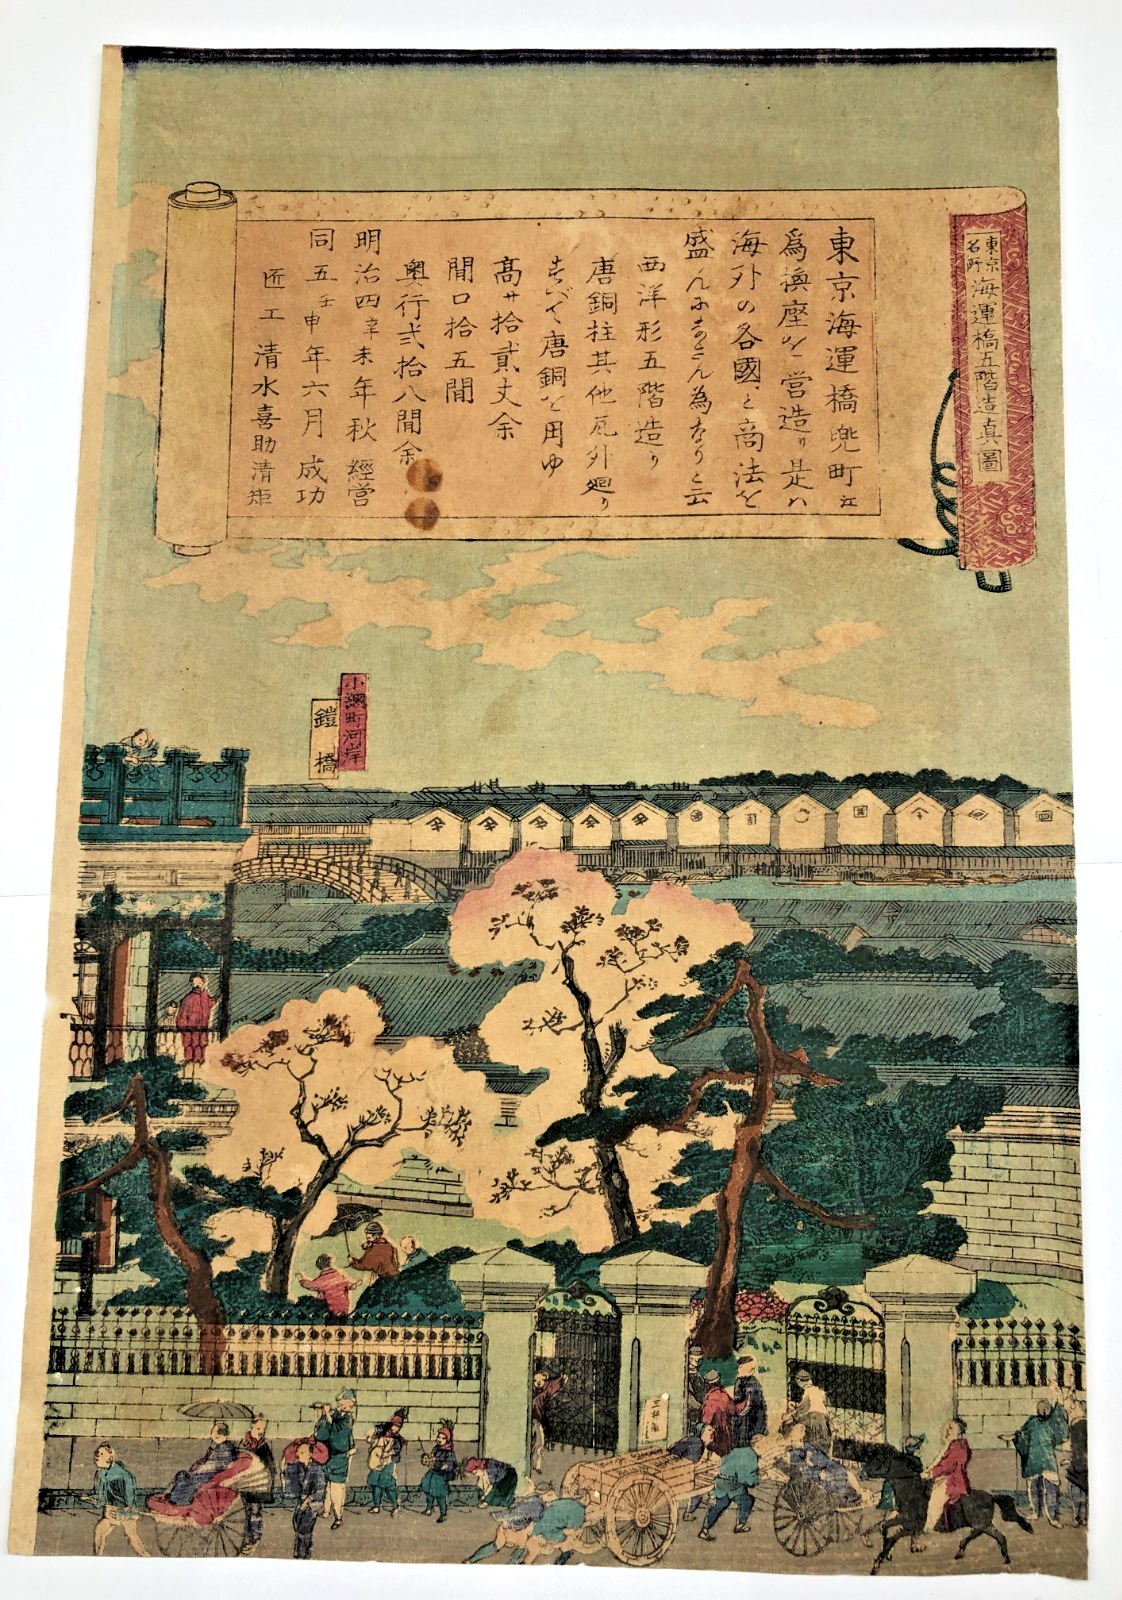 東京名所
海運橋五階造真圖
東京海運橋兜町江
為換座ヲ営造リ是ハ
海外の各國と商法を
盛んになさん為なりと云
西洋形五階造り
唐銅柱其他瓦外廻り
すべて唐銅を用ゆ
高サ拾貳丈余
間口拾五間
奥行弐拾八間余
明治四辛未年秋経営
同五壬申年六月成功
匠工清水喜助清矩
小網町河岸
鎧橋